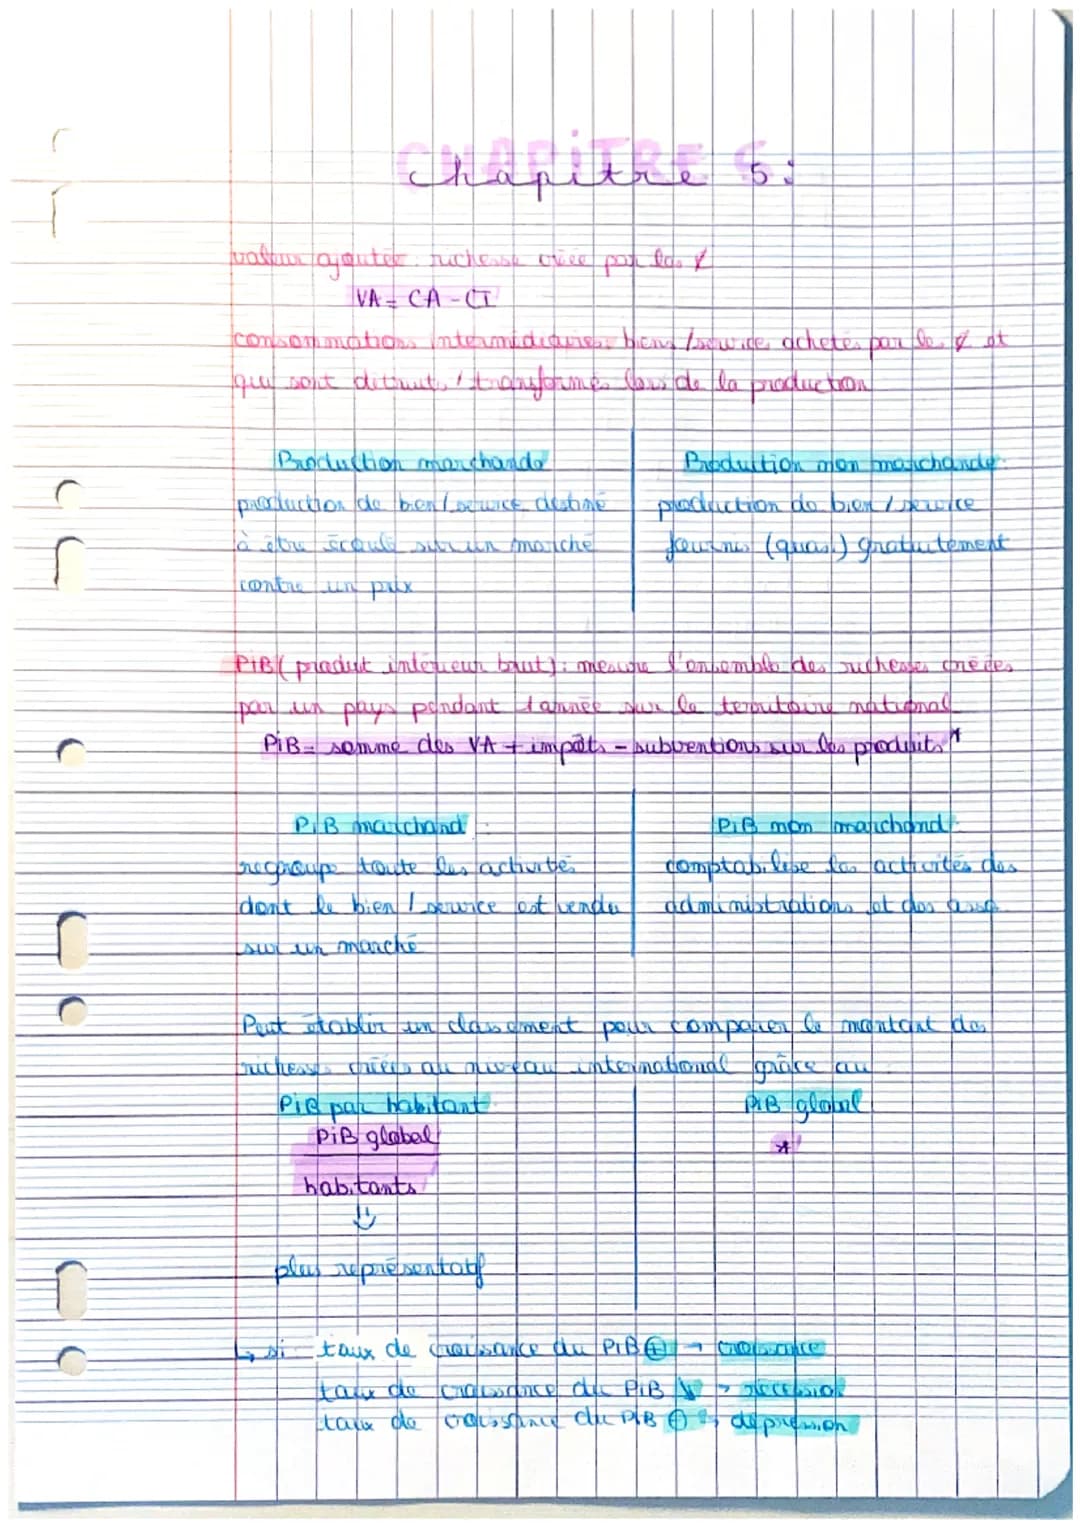 CHAPITRE 5
chapitre 5:
valeur ajoutée: richesse créée par les €
VA = CA - CI
consommations intermédiaires: biens / services achetés par les € et
qui sont détruits / transformés lors de la production
Production marchande
production de bien / service destiné
à être écoulé sur un marché
contre un prix
Production non marchande:
production de bien / service
fournis (quasi) gratuitement
PiB (produit intérieur brut): mesure l'ensemble des richesses créées
par un pays pendant 1 année sur le territoire national
PiB = somme des VA + impôts - subventions sur les produits *
PiB marchand:
regroupe toute les activités
dont le bien / service est vendu
sur un marché
PiB non marchand:
comptabilise les activités des
administrations et des asso
Peut établir un classement pour comparer le montant des
richesses créées au niveau international grâce au:
PiB par habitant
PiB global
habitants
plus représentatif
PiB global
*
↳ si taux de croissance du PiB ⊕ → croissance
taux de croissance du PiB ↘ → récession
taux de croissance du PiB → dépression